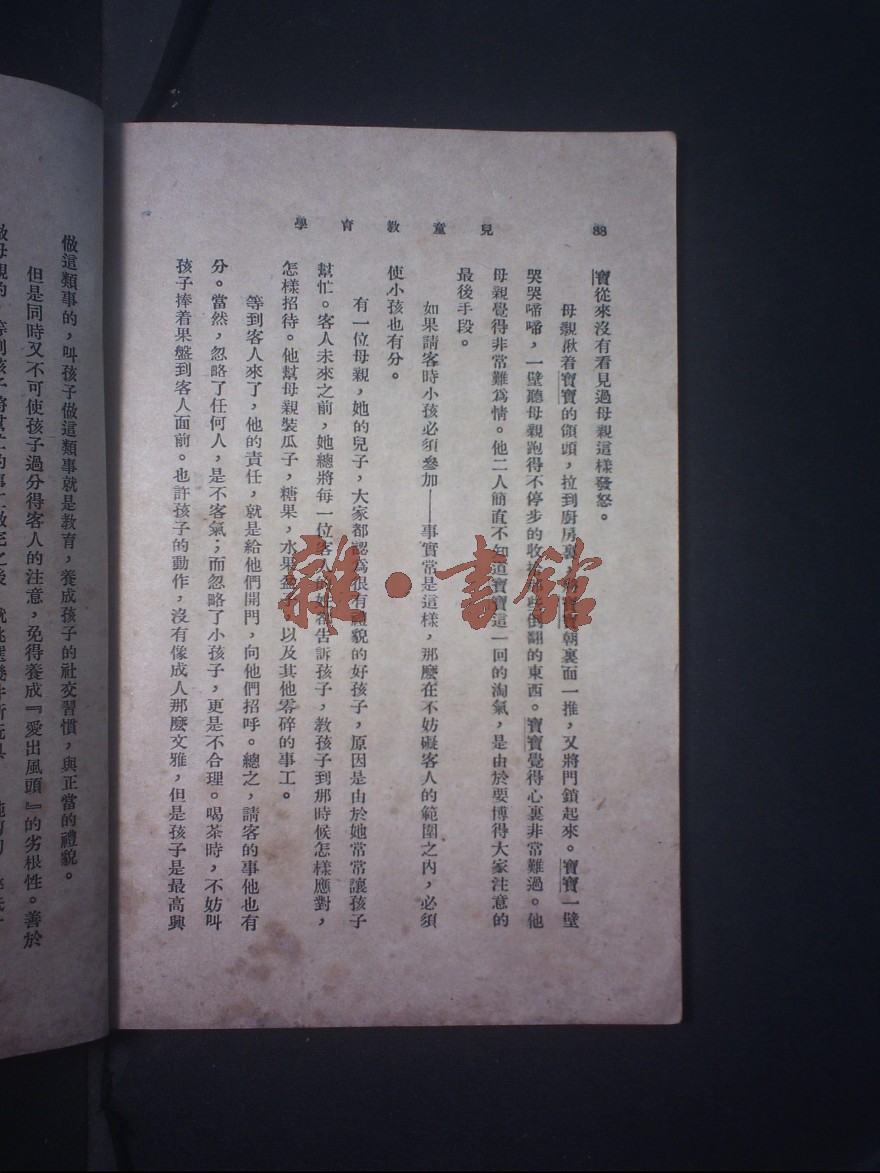 88
兒童教育學
寶從來沒有看見過母親這樣發怒。
母親揪着寶寶的領頭，拉到廚房裏，將寶寶朝裏面一推，又將門鎖起來。寶寶一壁
哭哭啼啼，一壁聽母親跑得不停步的收拾那些倒翻的東西。寶寶覺得心裏非常難過。他
母親覺得非常難爲情。他二人簡直不知道寶寶這一回的淘氣，是由於要博得大家注意的
最後手段。
如果請客時小孩必須參加——事實常是這樣，那麼在不妨礙客人的範圍之內，必須
使小孩也有分。
有一位母親，她的兒子，大家都認為很有禮貌的好孩子，原因是由於她常常讓孩子
幫忙。客人未來之前，她總將每一位客人的姓名告訴孩子，教孩子到那時候怎樣應對，
怎樣招待。他幫母親裝瓜子，糖果，水果盆子，以及其他零碎的事工。
等到客人來了，他的責任，就是給他們開門，向他們招呼。總之，請客的事他也有
分。當然，忽略了任何人，是不客氣；而忽略了小孩子，更是不合理。喝茶時，不妨叫
孩子捧着果盤到客人面前。也許孩子的動作，沒有像成人那麼文雅，但是孩子是最高興
做這類事的，叫孩子做這類事就是教育，養成孩子的社交習慣，與正當的禮貌。
但是同時又不可使孩子過分得客人的注意，免得養成『愛出風頭』的劣根性。善於
雜·書館